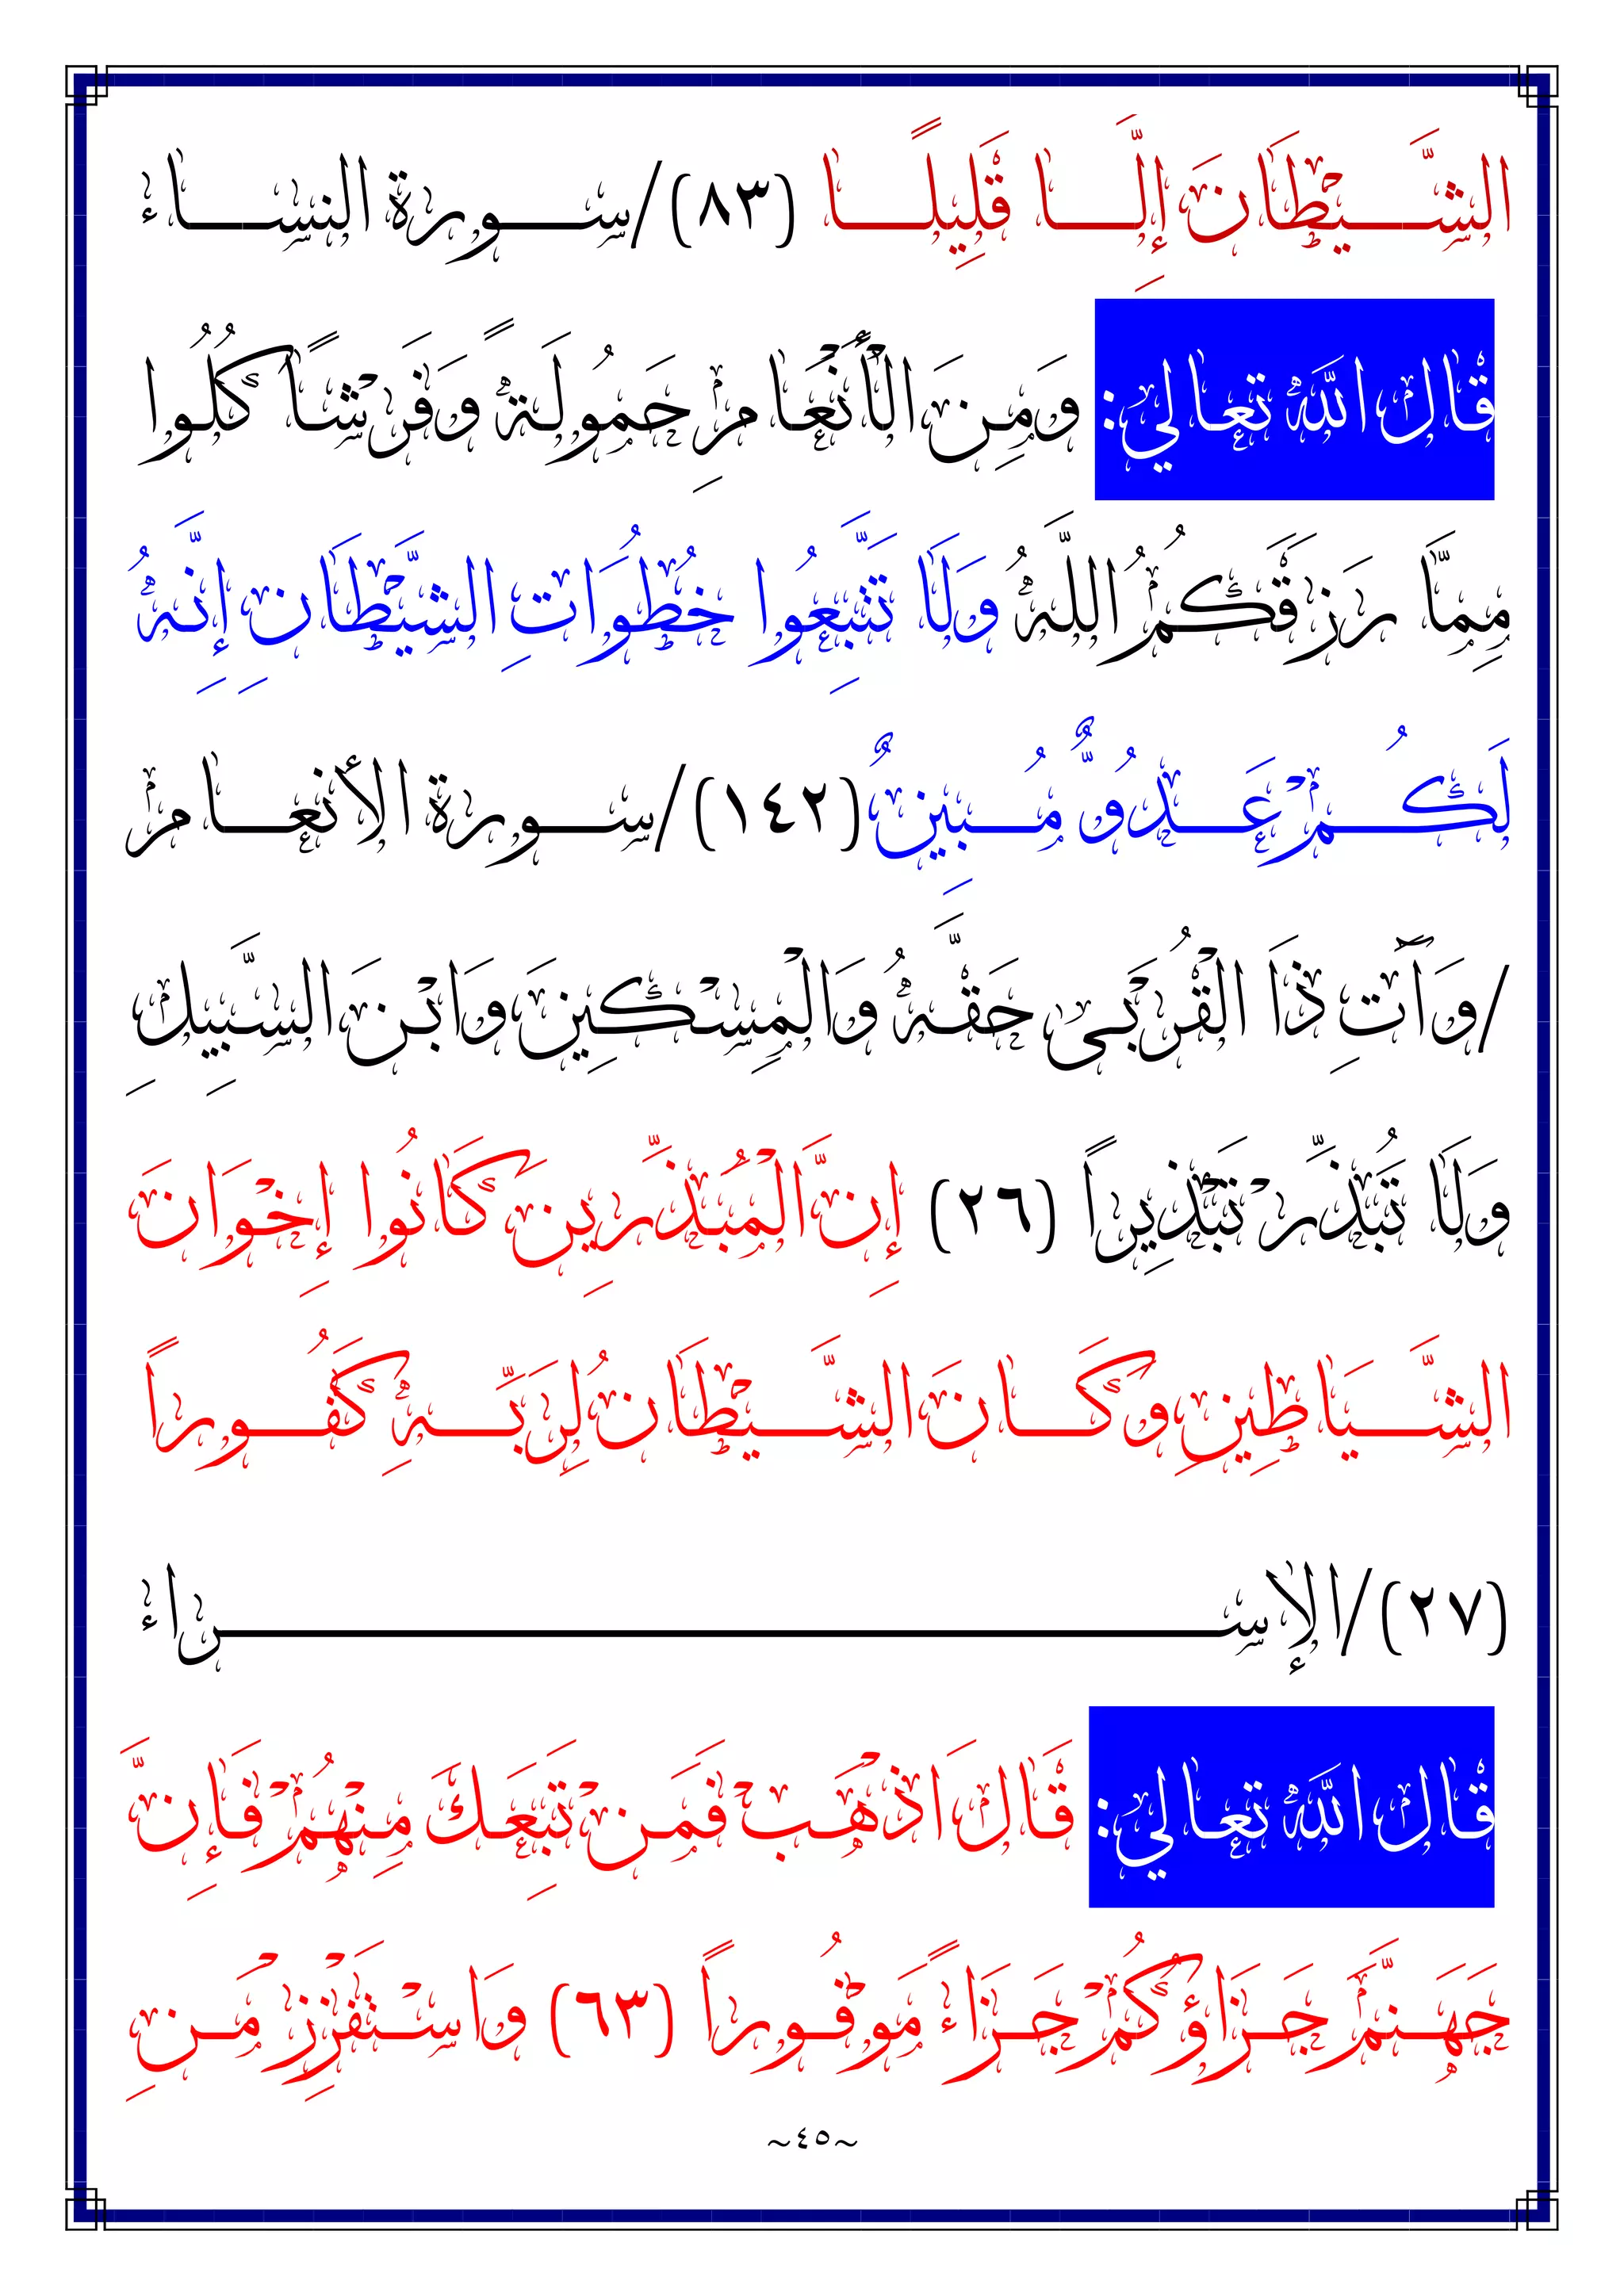 الشَّيْطَانَ إِلَّا قَلِيلًا (٨٣)/سورة النساء
قال الله تعالي: وَمِنَ الْأَنْعَامِ حَمُولَةً وَفَرْشاً كُلُوا
مِمَّا رَزَقَكُمُ اللَّهُ وَلَا تَتَّبِعُوا خُطُوَاتِ الشَّيْطَانِ إِنَّهُ
لَكُمْ عَدُوٌّ مُبِينٌ (١٤٢)/سورة الأنعام
/وَآتِ ذَا الْقُرْبَى حَقَّهُ وَالْمِسْكِينَ وَابْنَ السَّبِيلِ
وَلَا تُبَذِّرْ تَبْذِيراً (٢٦) إِنَّ الْمُبَذِّرِينَ كَانُوا إِخْوَانَ
الشَّيَاطِينِ وَكَانَ الشَّيْطَانُ لِرَبِّهِ كَفُوراً
(٢٧)/الإسراء
قال الله تعالي: قَالَ اذْهَبْ فَمَنْ تَبِعَكَ مِنْهُمْ فَإِنَّ
جَهَنَّمَ جَزَاؤُكُمْ جَزَاءً مَوْفُوراً (٦٣) وَاسْتَفْزِزْ مَنِ
~٤٥~